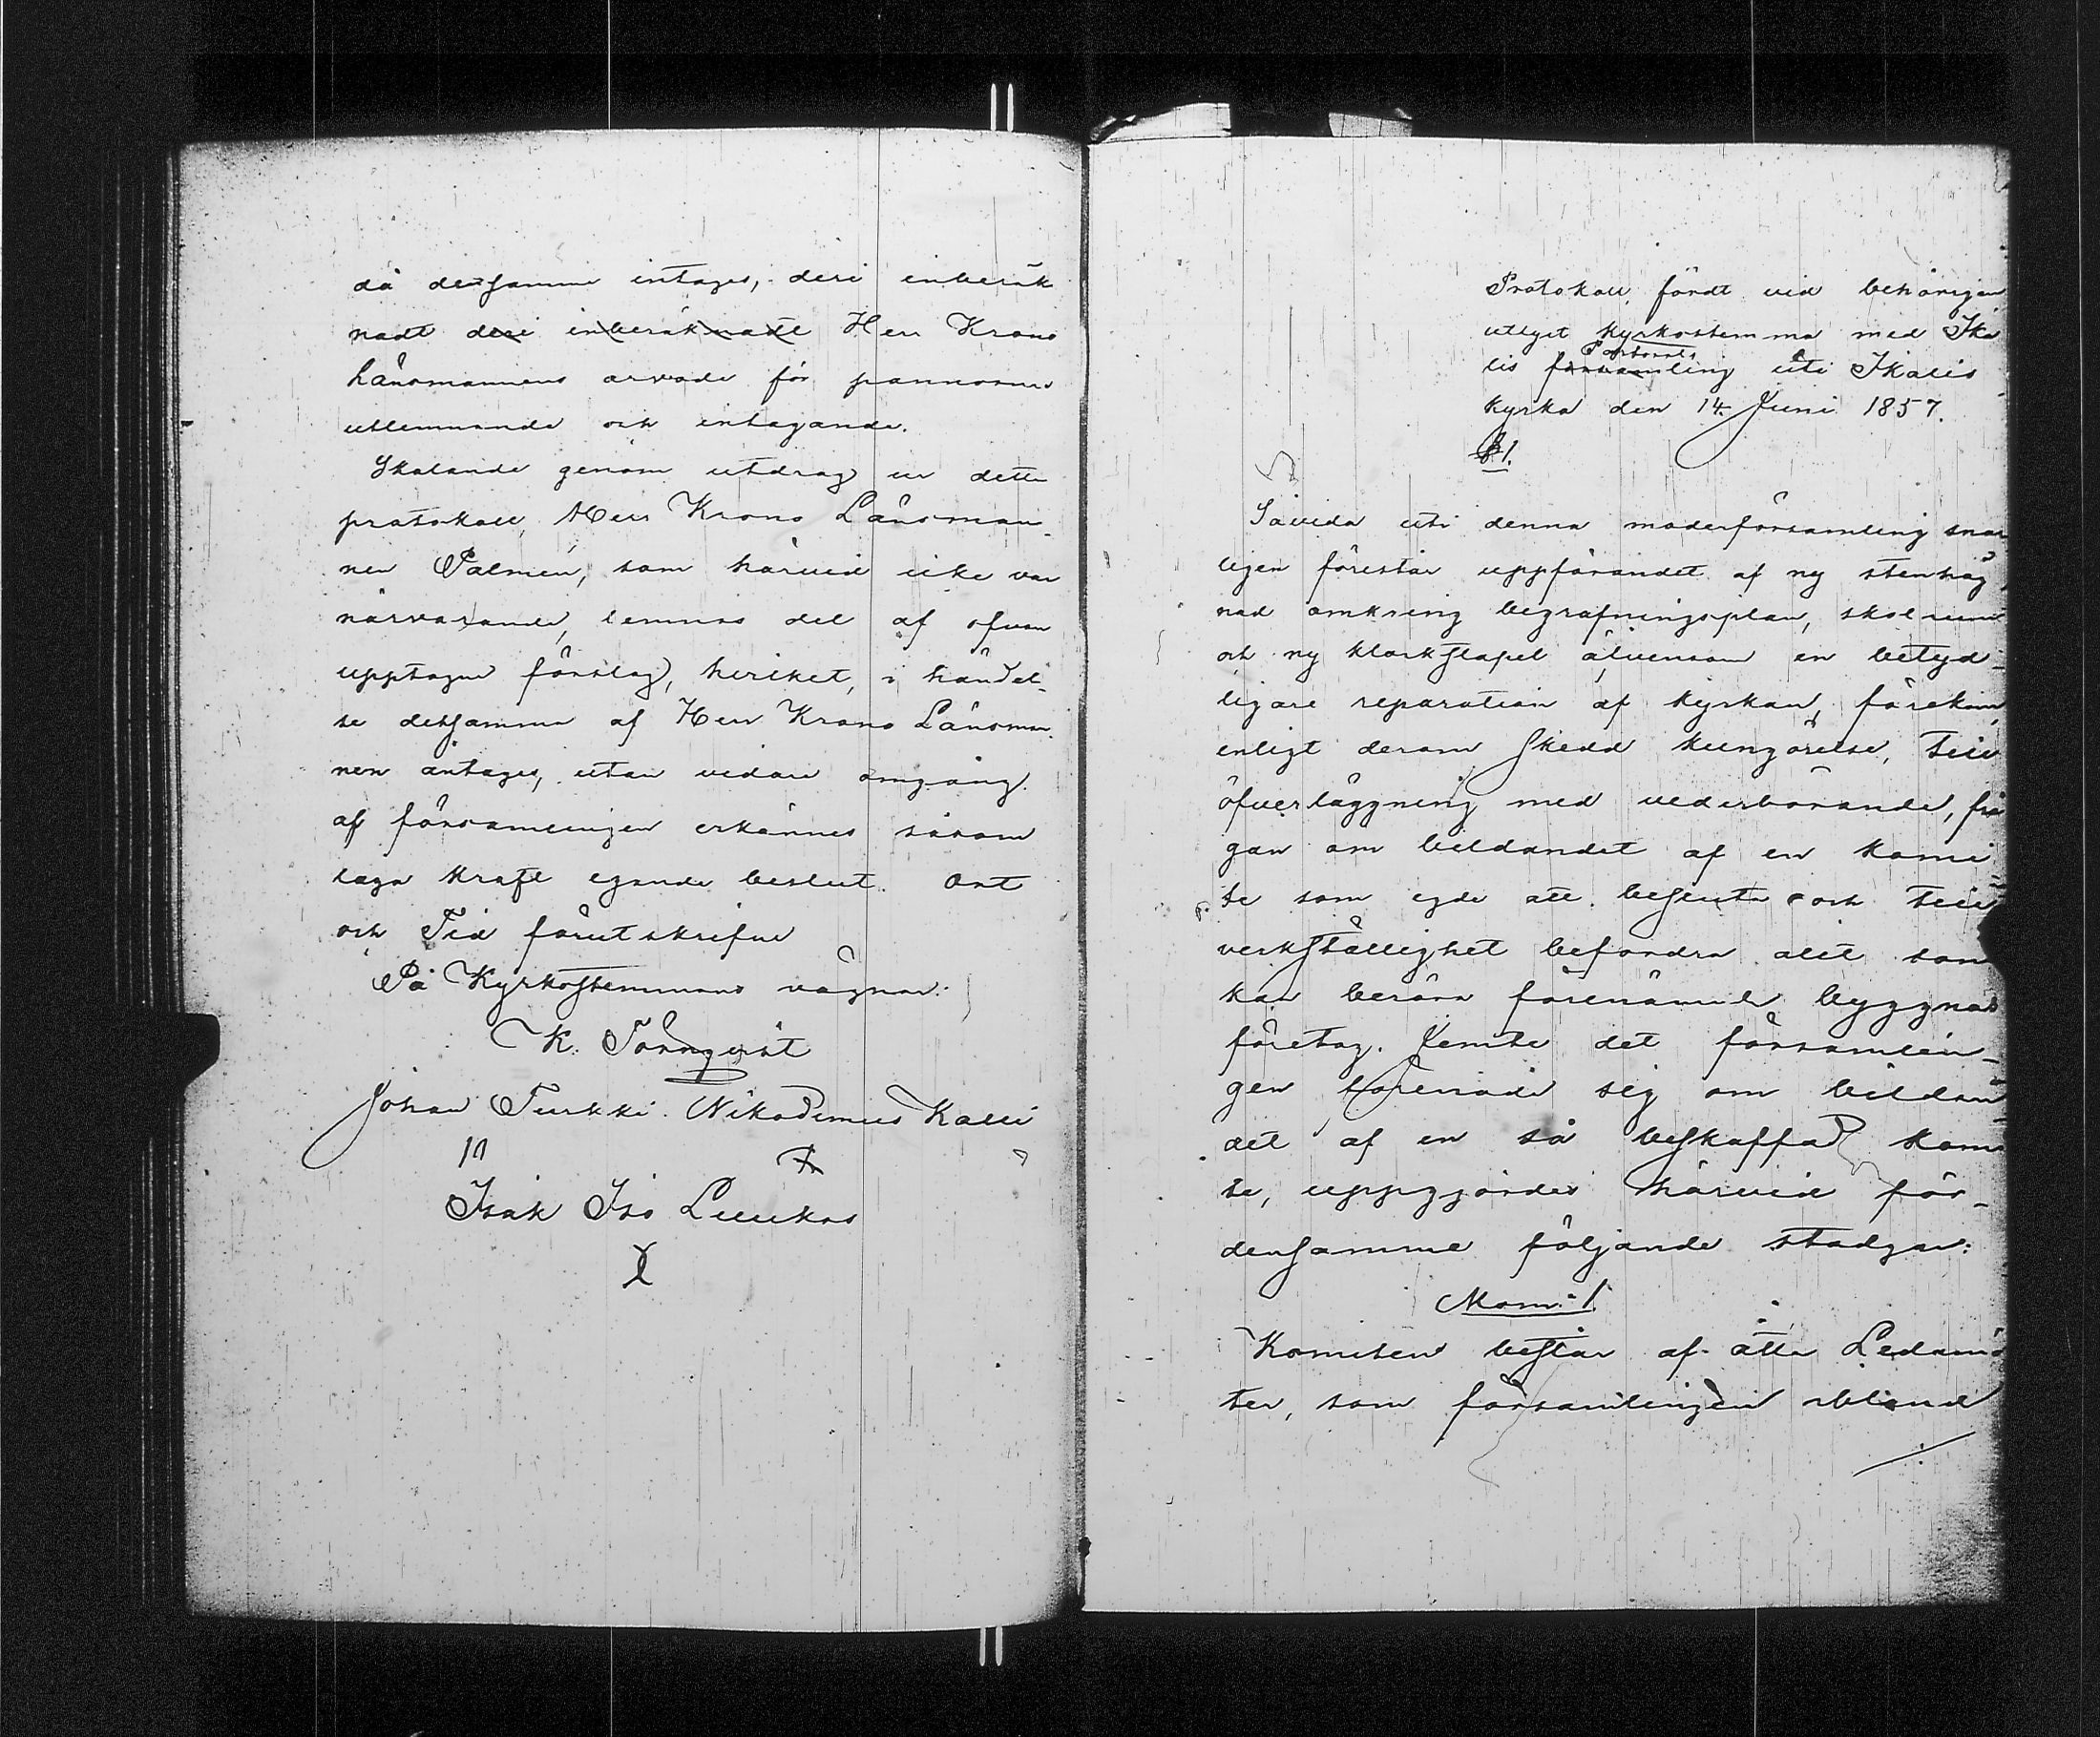 då densamma intages, deri inberäk
nadt deri inberäknadt Herr Krono
Länsmannens arvode för pannornas
utlemnande och intagande.
Skolande genom utdrag ur detta
protokoll, Herr Krono Länsman-
nen Palmén, som härvid icke var
närvarande, lemnas del af ofvan
upptagna förslag, hvilket, i händel-
se detsamma af Herr Krono Länsman-
nen antages, utan vidare omgång
af församlingen erkännes såsom
laga kraft egande beslut. Ort
och Tid förutskrifne
På Kyrkostemmans vägnar:
K. Törnqvist
Johan Turkki. Nikodemus Kalli
Isak Iso Luukas
Protokoll, fördt vid behörigen
utlyst kyrkostemma med Ika
Pastorats
lis församling uti Ikalis
kyrka den 14 Juni 1857.
§ 1.
Såvida uti denna moderförsamling snar
ligen förestår uppförandet af ny stenhäg
nad omkring begrafningsplan, skolrum
och ny klockstapel äfvensom en betyd-
ligare reparation af kyrkan, förekom,
enligt derom skedd kungörelse, till
öfverläggning med vederbörande, frå
gan om bildandet af en komi
te som egde att besluta och till
verkställighet befordra allt som
kan beröra förenämnde byggnads
företag. Jemte det församlin-
gen förenade sig om bildan
det af en så beskaffad komi
te, uppgjordes härvid för
densamma följande stadgar:
Mom: 1
Komiten består af åtta Ledamö
ter, som församlingen ibland